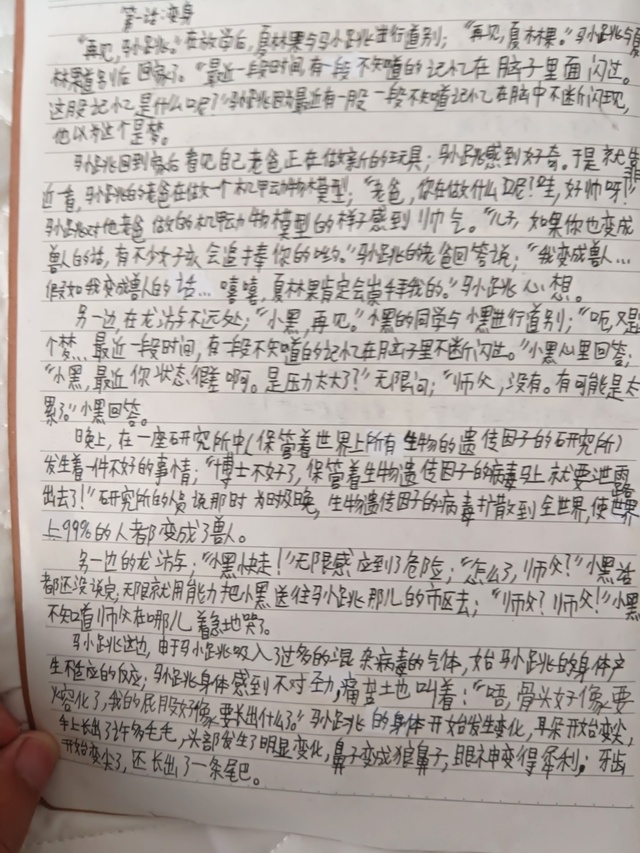 第一话:变身
“再见,马小跳。”在放学后,夏林果与马小跳进行道别;“再见,夏林果。”马小跳与夏
林果道别后回家了。“最近一段时间,有一段不知道的记忆在脑子里面闪过。
这股记忆是什么呢?”马小跳因为最近有一股一段不知道记忆在脑中不断闪现,
他以为这个是梦。
马小跳回到家后看见自己老爸正在做新的玩具;马小跳感到好奇。于是就靠
近一看,马小跳的老爸在做一个机甲动物模型;“老爸,你在做什么呢?哇,好帅呀!”
马小跳对他老爸做的机甲动物模型的样子感到帅气。“儿子,如果你也变成
兽人的话,有不少女孩会追捧你的哟。”马小跳的老爸回答说;“我变成兽人…
假如我变成兽人的话…嘻嘻,夏林果肯定会崇拜我的。”马小跳心想。
另一边,在龙游与不远处;“小黑,再见。”小黑的同学与小黑进行道别;“呃,又是
个梦…最近一段时间,有一段不知道的记忆在脑子里不断闪过。”小黑心里回答;
“小黑,最近你状态很差啊。是压力太大了?”无限问;“师父,没有。有可能是太
累了。”小黑回答。
晚上,在一座研究所中(保管着世界上所有生物的遗传因子的研究所)
发生着一件不好的事情;“博士不好了,保管着生物遗传因子的病毒马上就要泄露
出去了!”研究所的人员说那时为时极晚,生物遗传因子的病毒扩散到全世界,使世界
上99%的人都变成了兽人。
另一边的龙游与;“小黑快走!”无限感应到了危险;“怎么了,师父?”小黑话
都还没说完,无限就用能力把小黑送往马小跳那儿的市区去;“师父?师父!”小黑
不知道师父在哪儿着急地哭了。
马小跳这边,由于马小跳吸入了过多的混杂病毒的气体,始马小跳的身体产
生不适应的反应;马小跳身体感到不对劲,痛苦地叫着;“唔,骨头好像要
熔化了,我的屁股好像要长出什么。”马小跳的身体开始发生变化,耳朵开始变尖,
手上长出了许多毛毛,头部发生了明显变化,鼻子变成狼鼻子,眼神变得犀利;牙齿
开始变尖了,还长出了一条尾巴。